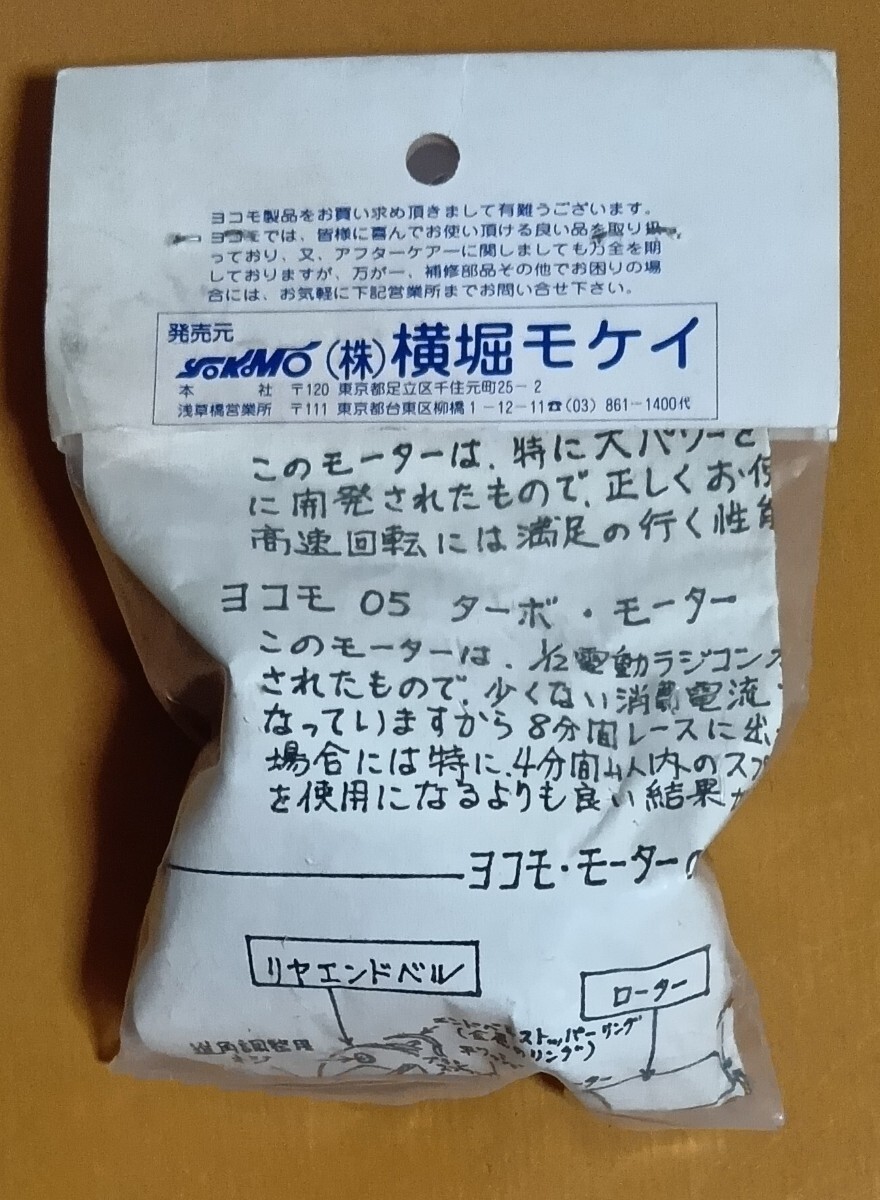 ヨコモ製品をお買い求め頂きまして有難うございます。
ヨコモでは、皆様に喜んでお使い頂ける良い品を取り扱
っており、又、アフターケアーに関しましても万全を期
しておりますが、万が一、補修部品その他でお困りの場
合には、お気軽に下記営業所までお問い合せ下さい。
発売元
YOKOMO (株)横堀モケイ
本 社 〒120 東京都足立区千住元町25-2
浅草橋営業所 〒111 東京都台東区柳橋1-12-11☎(03)861-1400代
このモーターは、特に大パワーと
に開発されたもので、正しくお使
高速回転には満足の行く性能
ヨコモ 05 ターボ・モーター
このモーターは、1/12電動ラジコン
されたもので、少くない消費電流
なっていますから8分間レースに出
場合には特に、4分間以内のスプ
を使用になるよりも良い結果が
ヨコモ・モーターの
リヤエンドベル
ローター
ストッパーリング
進角調整用
ネジ
リング)